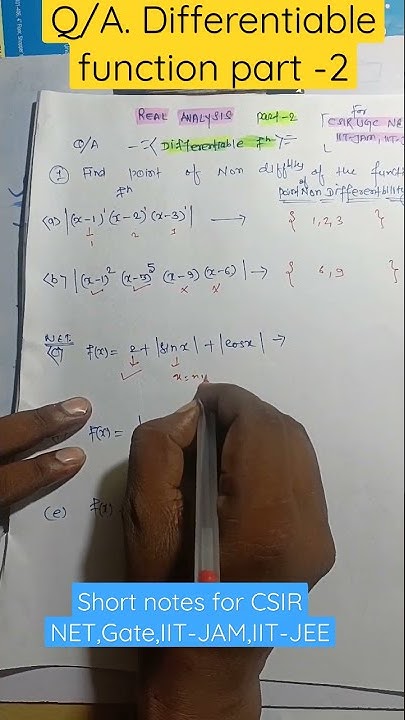 Q/A. Differentiable
function part -2
REAL ANALYSIS part-2 [for
CSIR UGC NE
IIT-JAM, IIT-
Q/A -⟨ Differentiable fⁿ ⟩=
① Find point of Non diffblity of the functi
fⁿ point Non Differentibility
(a) |(x-1)¹(x-2)¹(x-3)¹| → { 1,2,3 }
1 2 3
(b) |(x-1)² (x-5)⁵ (x-9) (x-6)| → { 6,9 }
NET
(c) f(x) = 2 + |sin x| + |cos x| →
f(x) = |
(e) f(x)
Short notes for CSIR
NET,Gate,IIT-JAM,IIT-JEE